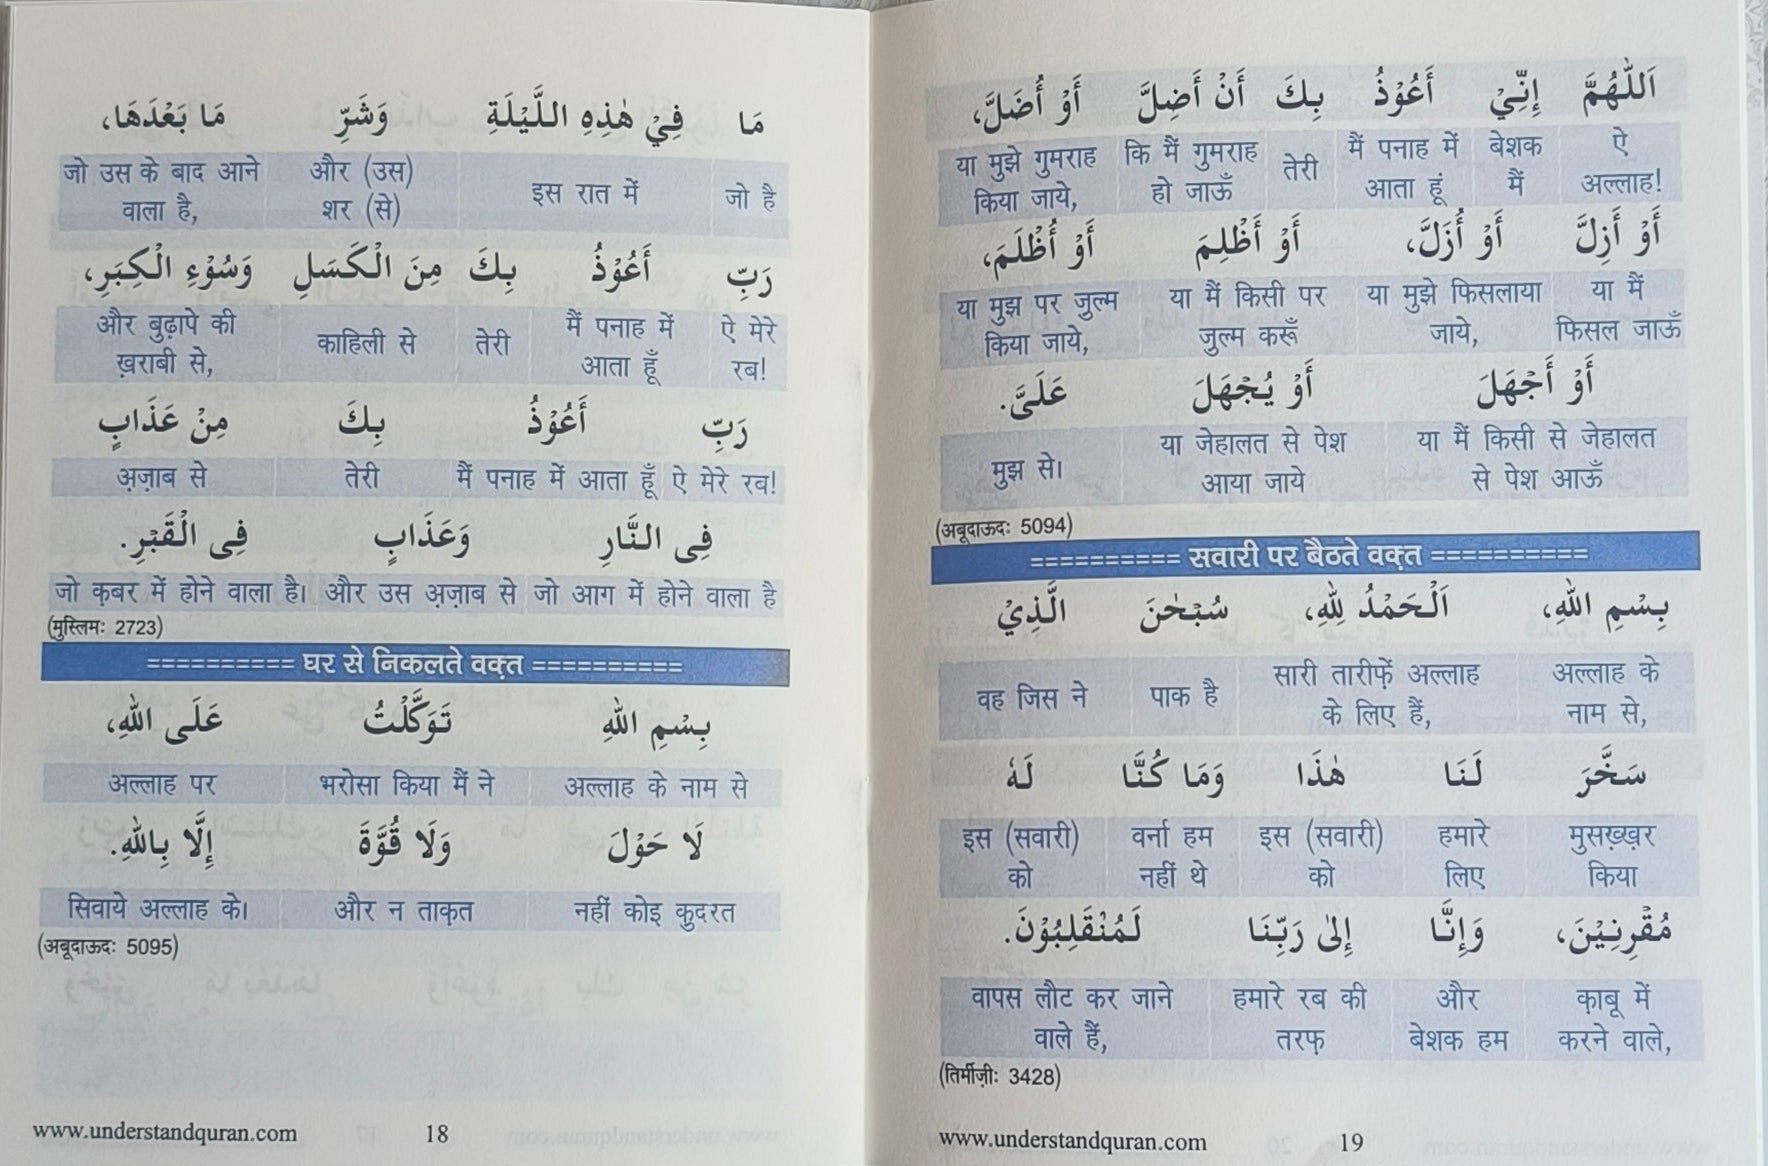 مَا فِيْ هٰذِهِ اللَّيْلَةِ وَشَرِّ مَا بَعْدَهَا،
जो है इस रात में और (उस) शर (से) जो उस के बाद आने वाला है,
رَبِّ أَعُوْذُ بِكَ مِنَ الْكَسَلِ وَسُوْءِ الْكِبَرِ،
ऐ मेरे रब! मैं पनाह में आता हूँ तेरी काहिली से और बुढ़ापे की ख़राबी से,
رَبِّ أَعُوْذُ بِكَ مِنْ عَذَابٍ
ऐ मेरे रब! मैं पनाह में आता हूँ तेरी अ़ज़ाब से
فِى النَّارِ وَعَذَابٍ فِى الْقَبْرِ.
जो आग में होने वाला है और उस अ़ज़ाब से जो क़बर में होने वाला है।
(मुस्लिमः 2723)
========== घर से निकलते वक़्त ==========
بِسْمِ اللهِ تَوَكَّلْتُ عَلَى اللهِ،
अल्लाह के नाम से भरोसा किया मैं ने अल्लाह पर
لَا حَوْلَ وَلَا قُوَّةَ إِلَّا بِاللهِ.
नहीं कोइ कु़दरत और न ताक़त सिवाये अल्लाह के।
(अबूदाऊदः 5095)
www.understandquran.com 18
اَللّٰهُمَّ إِنِّيْ أَعُوْذُ بِكَ أَنْ أَضِلَّ أَوْ أُضَلَّ،
ऐ अल्लाह! बेशक मैं मैं पनाह में आता हूं तेरी कि मैं गुमराह हो जाऊँ या मुझे गुमराह किया जाये,
أَوْ أَزِلَّ أَوْ أُزَلَّ، أَوْ أَظْلِمَ أَوْ أُظْلَمَ،
या मैं फिसल जाऊँ या मुझे फिसलाया जाये, या मैं किसी पर जु़ल्म करूँ या मुझ पर जु़ल्म किया जाये,
أَوْ أَجْهَلَ أَوْ يُجْهَلَ عَلَىَّ.
या मैं किसी से जेहालत से पेश आऊँ या जेहालत से पेश आया जाये मुझ से।
(अबूदाऊदः 5094)
========== सवारी पर बैठते वक़्त ==========
بِسْمِ اللهِ، اَلْحَمْدُ لِلّٰهِ، سُبْحٰنَ الَّذِيْ
अल्लाह के नाम से, सारी तारीफ़ें अल्लाह के लिए हैं, पाक है वह जिस ने
سَخَّرَ لَنَا هٰذَا وَمَا كُنَّا لَهٗ
मुसख़्ख़र किया हमारे लिए इस (सवारी) को वर्ना हम नहीं थे इस (सवारी) को
مُقْرِنِيْنَ، وَإِنَّا إِلىٰ رَبِّنَا لَمُنْقَلِبُوْنَ.
क़ाबू में करने वाले, और बेशक हम हमारे रब की तरफ़ वापस लौट कर जाने वाले हैं,
(तिर्मीज़ीः 3428)
www.understandquran.com 19